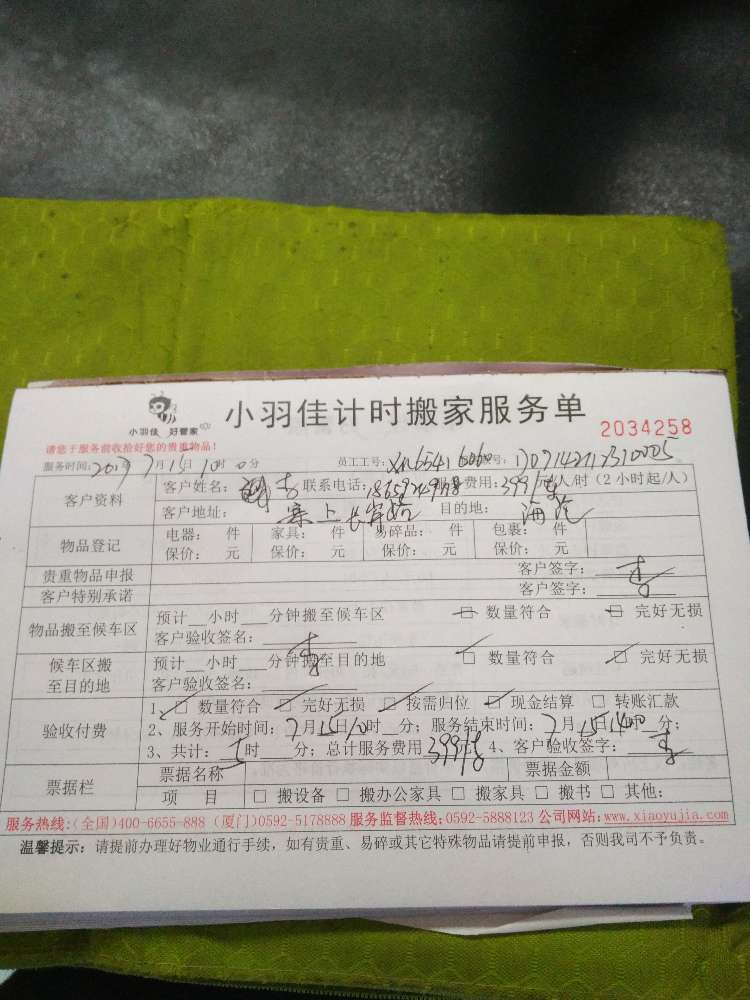 小羽佳 好管家
小羽佳计时搬家服务单
2034258
请您于服务前收拾好您的贵重物品!
服务时间: 7月15日10时0分 员工工号: 号: 1707142117310005
客户资料
客户姓名: 联系电话: 费用: 399元/车/人/时(2小时起/人)
客户地址: 寨上长 目的地: 海沧
物品登记
电器: 件 家具: 件 易碎品: 件 包裹: 件
保价: 元 保价: 元 保价: 元 保价: 元
贵重物品申报 客户签字: 李
客户特别承诺 客户签字:
物品搬至候车区
预计__小时___分钟搬至候车区 ☑ 数量符合 ☑ 完好无损
客户验收签名: 李
候车区搬至目的地
预计__小时___分钟搬至目的地 ☑ 数量符合 ☑ 完好无损
客户验收签名:
验收付费
1、☑ 数量符合 ☑ 完好无损 ☑ 按需归位 ☑ 现金结算 □ 转账汇款
2、服务开始时间: 7月15日10时__分; 服务结束时间: 7月15日 分;
3、共计: 时___分; 总计服务费用 399 4、客户验收签字: 李
票据栏
票据名称 票据金额
项 目 □ 搬设备 □ 搬办公家具 □ 搬家具 □ 搬书 □ 其他:
服务热线:(全国)400-6655-888 (厦门)0592-5178888 服务监督热线:0592-5888123 公司网站:www.xiaoyujia.com
温馨提示: 请提前办理好物业通行手续, 如有贵重、易碎或其它特殊物品请提前申报, 否则我司不予负责。